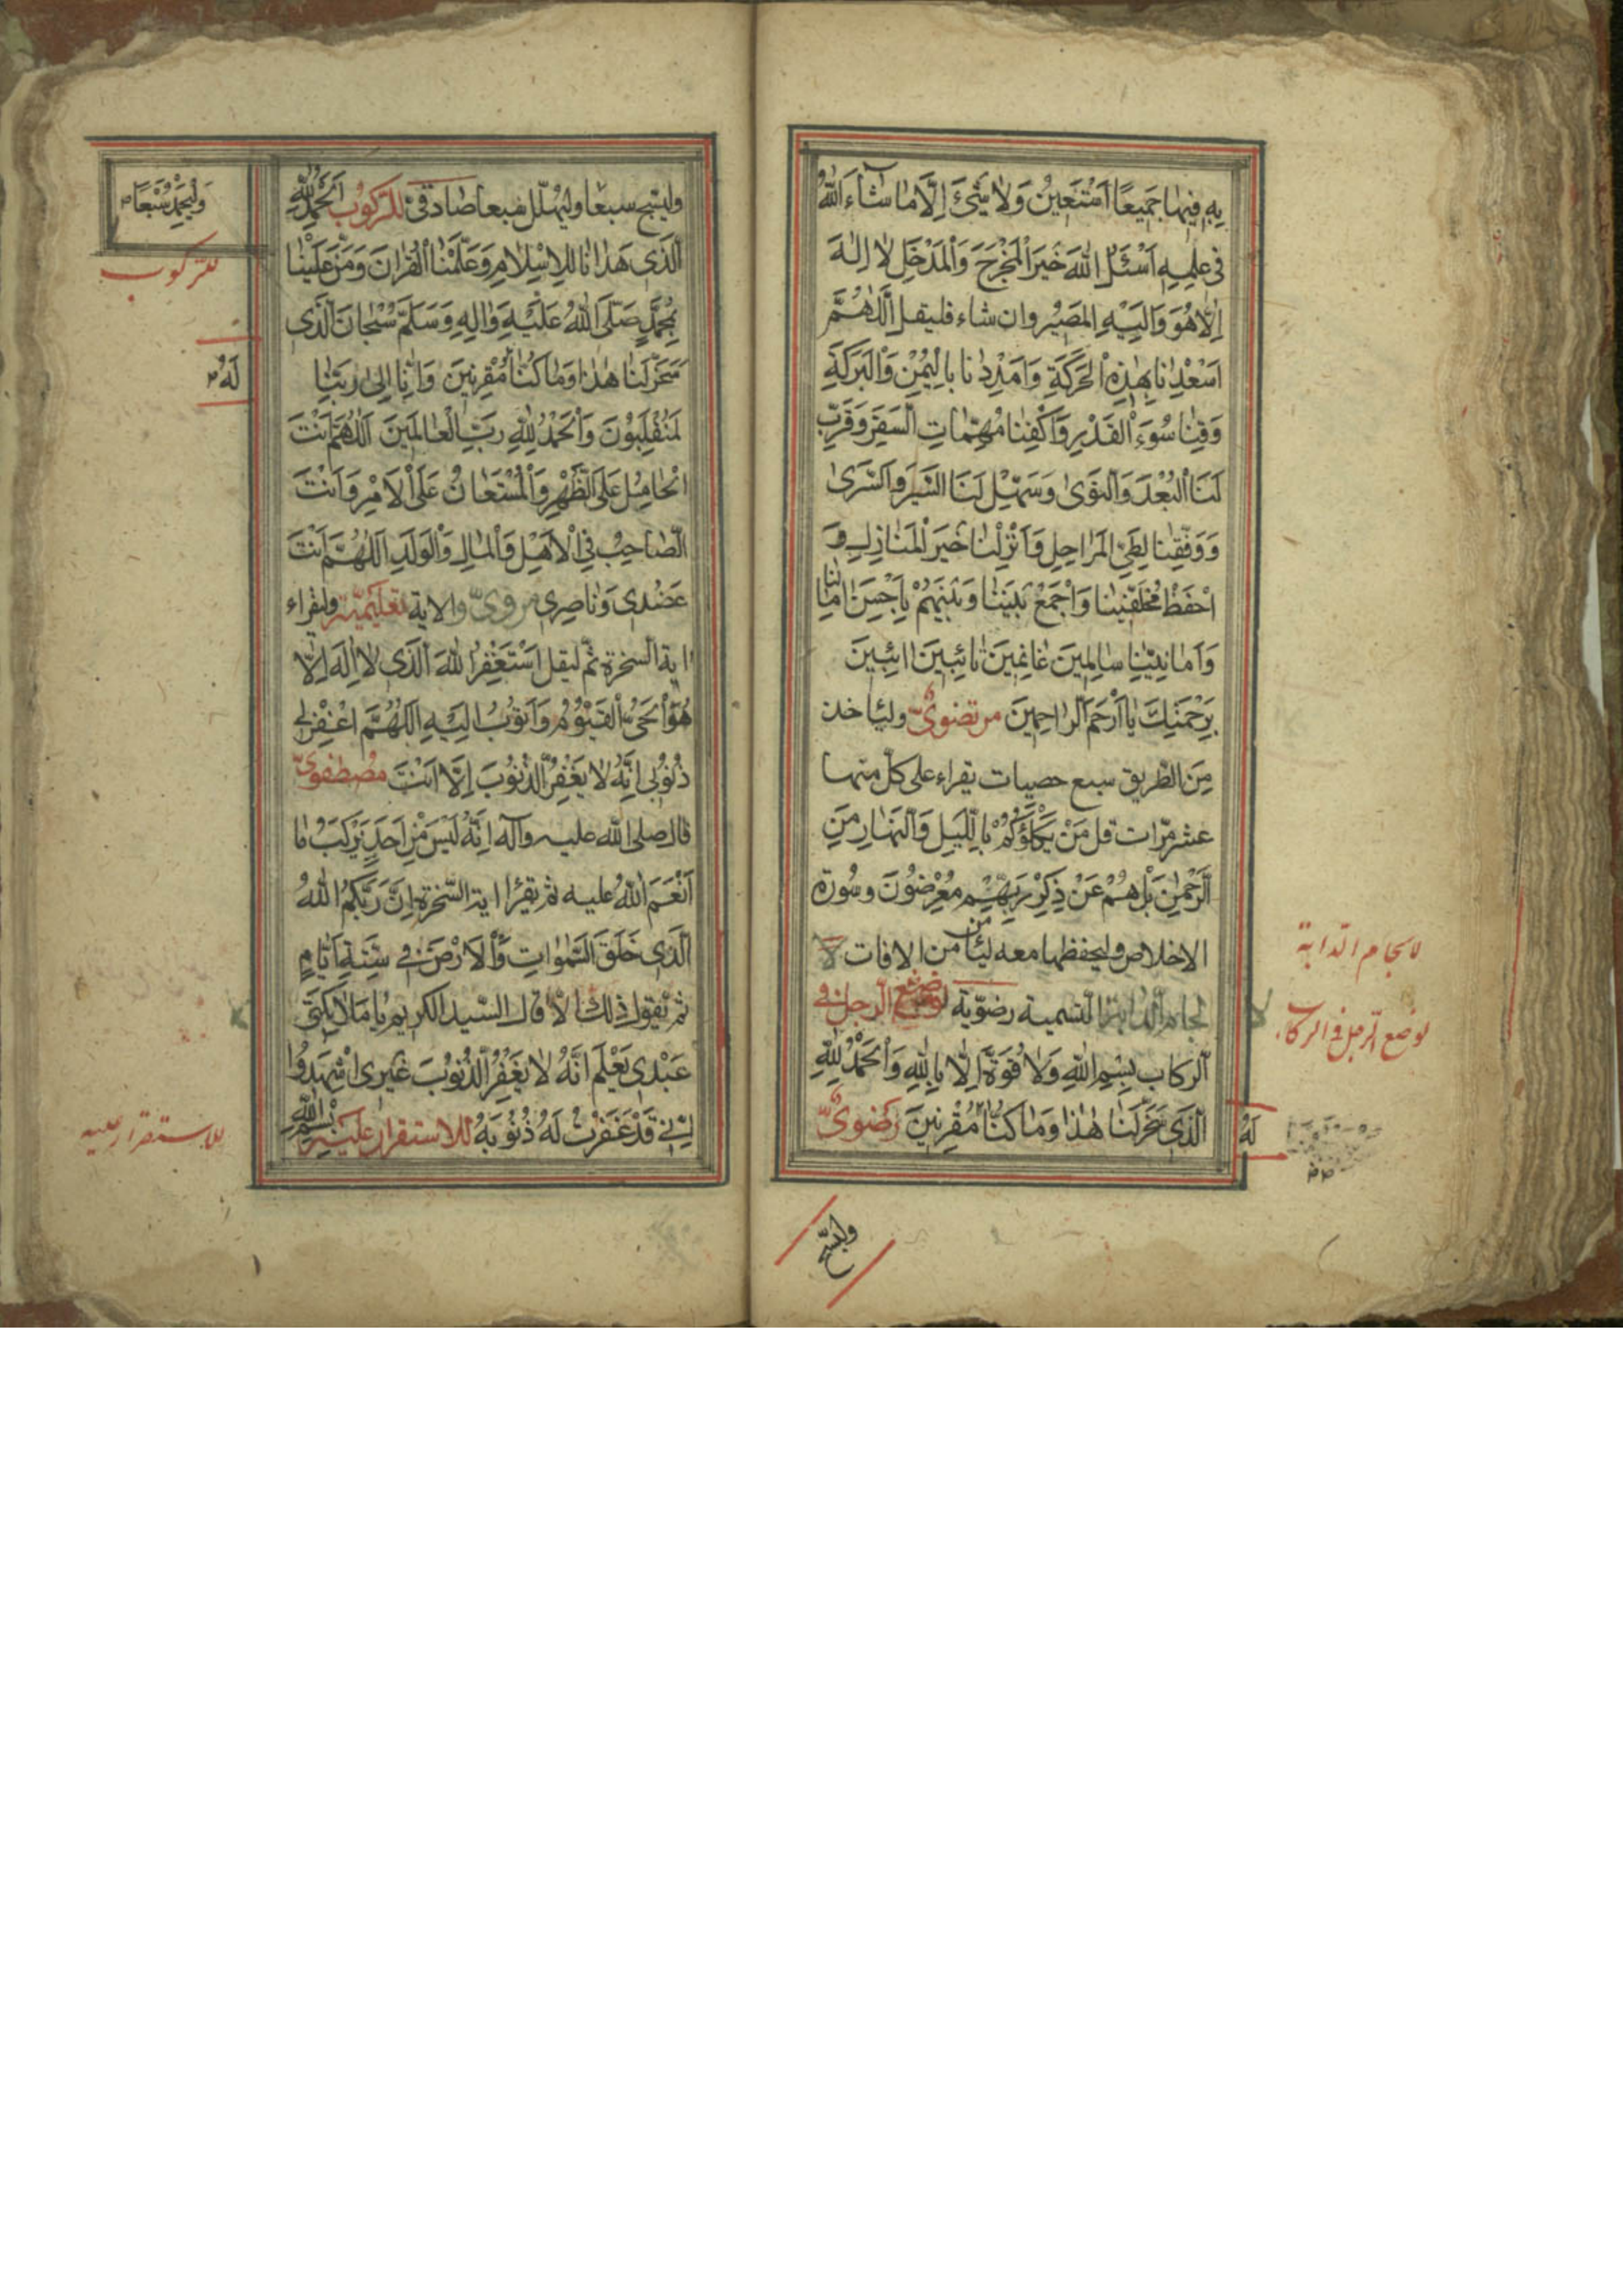 بِهِ فِيهَا جَمِيعًا اَسْتَعِينُ وَلَا شَيْءَ اِلَّا مَا شَاءَ اللهُ
فِى عِلْمِهِ اَسْئَلُ اللهَ خَيْرَ الْمَخْرَجِ وَالْمَدْخَلِ لَا اِلٰهَ
اِلَّا هُوَ وَاِلَيْهِ الْمَصِيْرُ وان شاء فليقل اَللّٰهُمَّ
اَسْعِدْنَا بِهٰذِهِ الْحَرَكَةِ وَامْدِدْنَا بِالْيُمْنِ وَالْبَرَكَةِ
وَقِنَا سُوْءَ الْقَدَرِ وَاكْفِنَا مُهِمَّاتِ السَّفَرِ وَقَرِّبْ
لَنَا الْبُعْدَ وَالنَّوٰى وَسَهِّلْ لَنَا السَّيْرَ وَالسُّرٰى
وَوَفِّقْنَا لِطَىِّ الْمَرَاحِلِ وَاَنْزِلْنَا خَيْرَ الْمَنَازِلِ وَ
احْفَظْ مُخَلَّفِيْنَا وَاجْمَعْ بَيْنَنَا وَبَيْنَهُمْ بِاَحْسَنِ امَالِنَا
وَاَمَانِيِّنَا سَالِمِينَ غَانِمِينَ تَائِبِينَ ائِبِينَ
بِرَحْمَتِكَ يَا اَرْحَمَ الرَّاحِمِينَ مرتضوىّ ولياخذ
مِنَ الطّريق سبع حصيات يقراء على كلّ منها
عشر مرّات قل مَنْ يَكْلَؤُكُمْ بِاللَّيْلِ وَالنَّهَارِ مِنَ
الرَّحْمٰنِ بَلْ هُمْ عَنْ ذِكْرِ رَبِّهِمْ مُعْرِضُوْنَ وسُورة
الاخلاص وليحفظها معه ليأمن من الافات لا
لجام الدابة التسمية رضويّة لوضع الرجل فى
الركاب بِسْمِ اللهِ وَلَا قُوَّةَ اِلَّا بِاللهِ وَالْحَمْدُ لِلّٰهِ
الَّذِى سَخَّرَ لَنَا هٰذَا وَمَا كُنَّا لَهُ مُقْرِنِينَ رَضوىّ
لالجام الدّابة
لوضع الرّجل فى الركاب
لَهُ
وليسبّح
وليسبّح سبعًا وليهلّل سبعا صادقىّ للرّكوب اَلْحَمْدُ لِلّٰهِ
الَّذِى هَدَانَا لِلْاِسْلَامِ وَعَلَّمَنَا الْقُرْانَ وَمَنَّ عَلَيْنَا
بِمُحَمَّدٍ صَلَّى اللهُ عَلَيْهِ وَالِهِ وَسَلَّمَ سُبْحَانَ الَّذِى
سَخَّرَ لَنَا هٰذَا وَمَا كُنَّا مُقْرِنِينَ وَاِنَّا اِلٰى رَبِّنَا
لَمُنْقَلِبُوْنَ وَالْحَمْدُ لِلّٰهِ رَبِّ الْعَالَمِينَ اَللّٰهُمَّ اَنْتَ
الْحَامِلُ عَلَى الظَّهْرِ وَالْمُسْتَعَانُ عَلَى الْاَمْرِ وَاَنْتَ
الصَّاحِبُ فِى الْاَهْلِ وَالْمَالِ وَالْوَلَدِ اَللّٰهُمَّ اَنْتَ
عَضُدِى وَنَاصِرِى مروىّ والاية تعليميّة وليقراء
اية السخرة ثمّ ليقل اَسْتَغْفِرُ اللهَ الَّذِى لَا اِلٰهَ اِلَّا
هُوَ الْحَىُّ الْقَيُّوْمُ وَاَتُوْبُ اِلَيْهِ اَللّٰهُمَّ اغْفِرْ لِى
ذُنُوْبِى اِنَّهُ لَا يَغْفِرُ الذُّنُوْبَ اِلَّا اَنْتَ مصطفوىّ
قال صلى الله عليه وآله اِنَّهُ لَيْسَ مِنْ اَحَدٍ يَرْكَبُ مَا
اَنْعَمَ اللهُ عليه ثم يقرأ اية السّخرة اِنَّ رَبَّكُمُ اللهُ
الَّذِى خَلَقَ السَّمٰوَاتِ وَالْاَرْضَ فِى سِتَّةِ اَيَّامٍ
ثم يقول ذلك الّا قال السّيد الكريم يَا مَلَائِكَتِى
عَبْدِى يَعْلَمُ اَنَّهُ لَا يَغْفِرُ الذُّنُوْبَ غَيْرِى اشْهَدُوْا
اَنِّى قَدْ غَفَرْتُ لَهُ ذُنُوْبَهُ للاستقرار عليه بِسْمِ اللهِ
وَلْيُحَمِّدْ سَبْعًا
للرّكوب
لَهُ
للاستقرار عليه